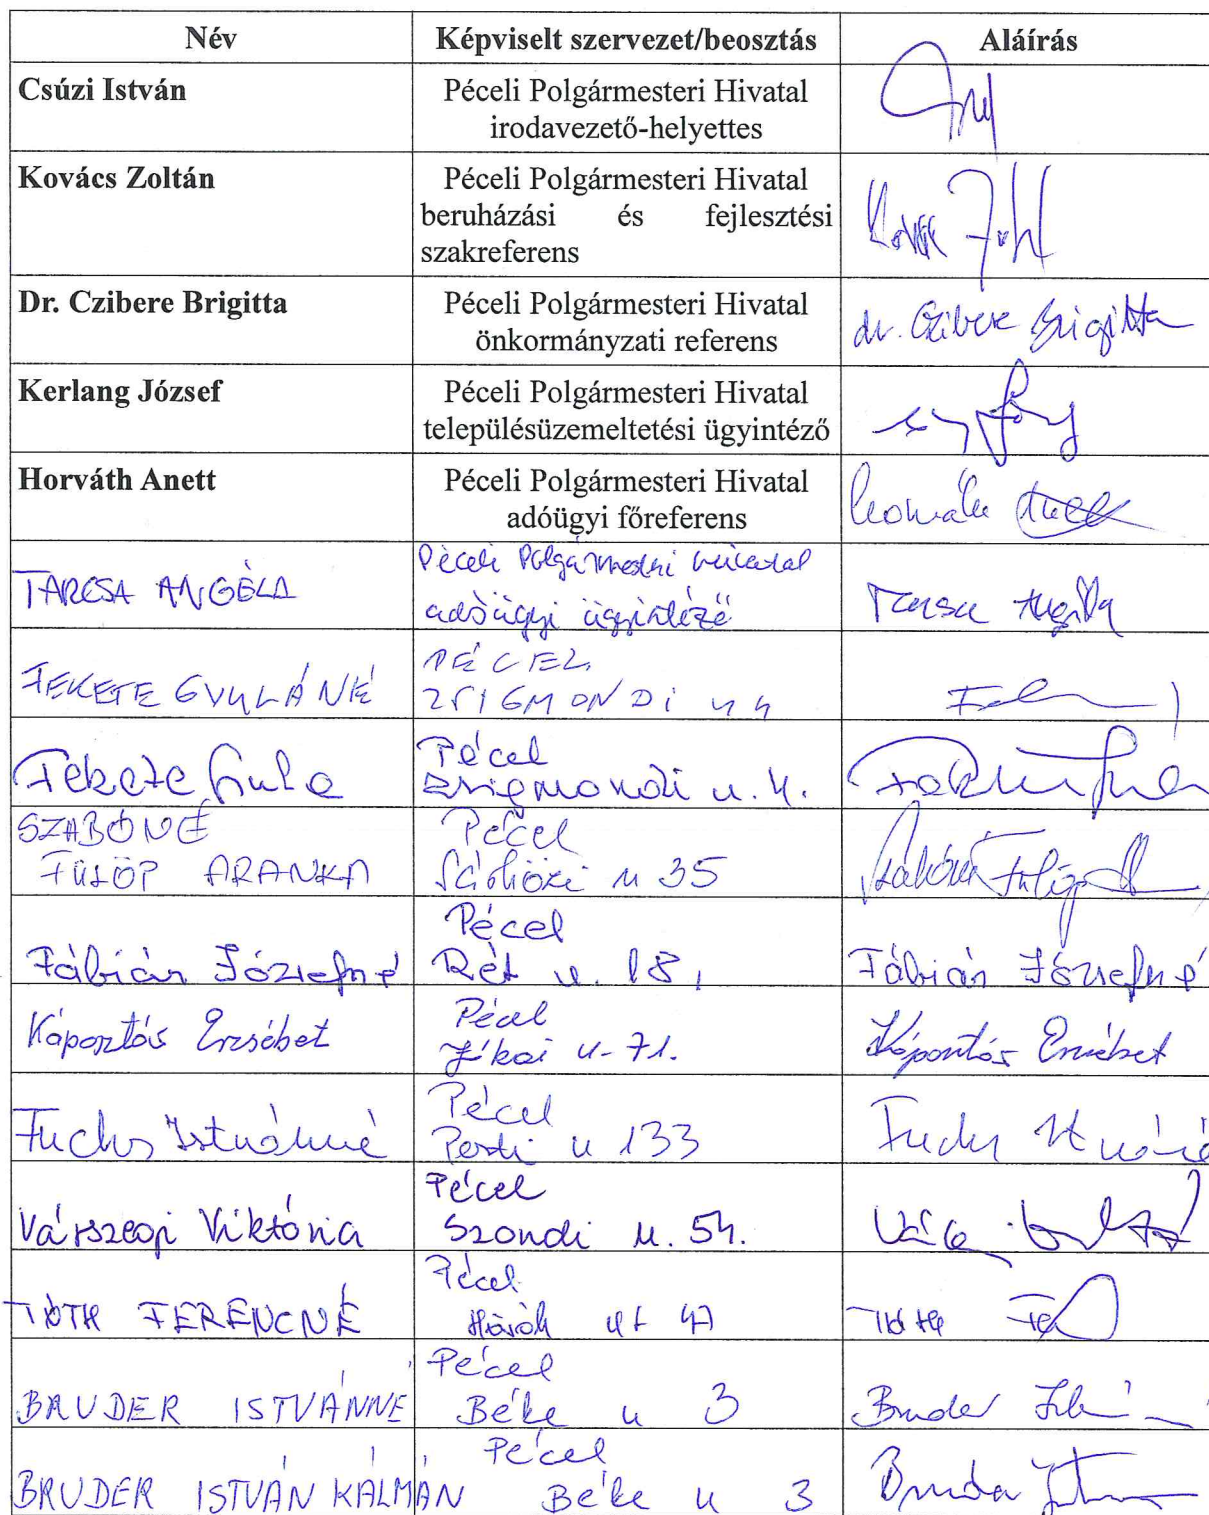 Név Képviselt szervezet/beosztás Aláírás
Csúzi István Péceli Polgármesteri Hivatal
irodavezető-helyettes
Kovács Zoltán Péceli Polgármesteri Hivatal
beruházási és fejlesztési
szakreferens
Dr. Czibere Brigitta Péceli Polgármesteri Hivatal
önkormányzati referens
dr. Czibere Brigitta
Kerlang József Péceli Polgármesteri Hivatal
településüzemeltetési ügyintéző
Horváth Anett Péceli Polgármesteri Hivatal
adóügyi főreferens
TARCSA ANGÉLA Péceli Polgármesteri Hivatal
adóügyi ügyintéző
FEKETE GYULÁNÉ PÉCEL
ZSIGMONDI u 4
Fekete Gyula Pécel
Zsigmondi u. 4.
SZABÓNÉ Pécel
FÜLÖP ARANKA u 35
Fábián Józsefné Pécel
Rét u. 18, Fábián Józsefné
Káposztás Erzsébet Pécel
Jókai u. 71. Káposztás Erzsébet
Fuchs Istvánné Pécel
Pesti u 133 Fuchs Istváné
Várszegi Viktória Pécel
Szondi u. 54.
TÓTH FERENCNÉ Pécel
BRUDER ISTVÁNNÉ Pécel
Béke u 3 Bruder
BRUDER ISTVÁN KÁLMÁN Pécel
Béke u 3 Bruder